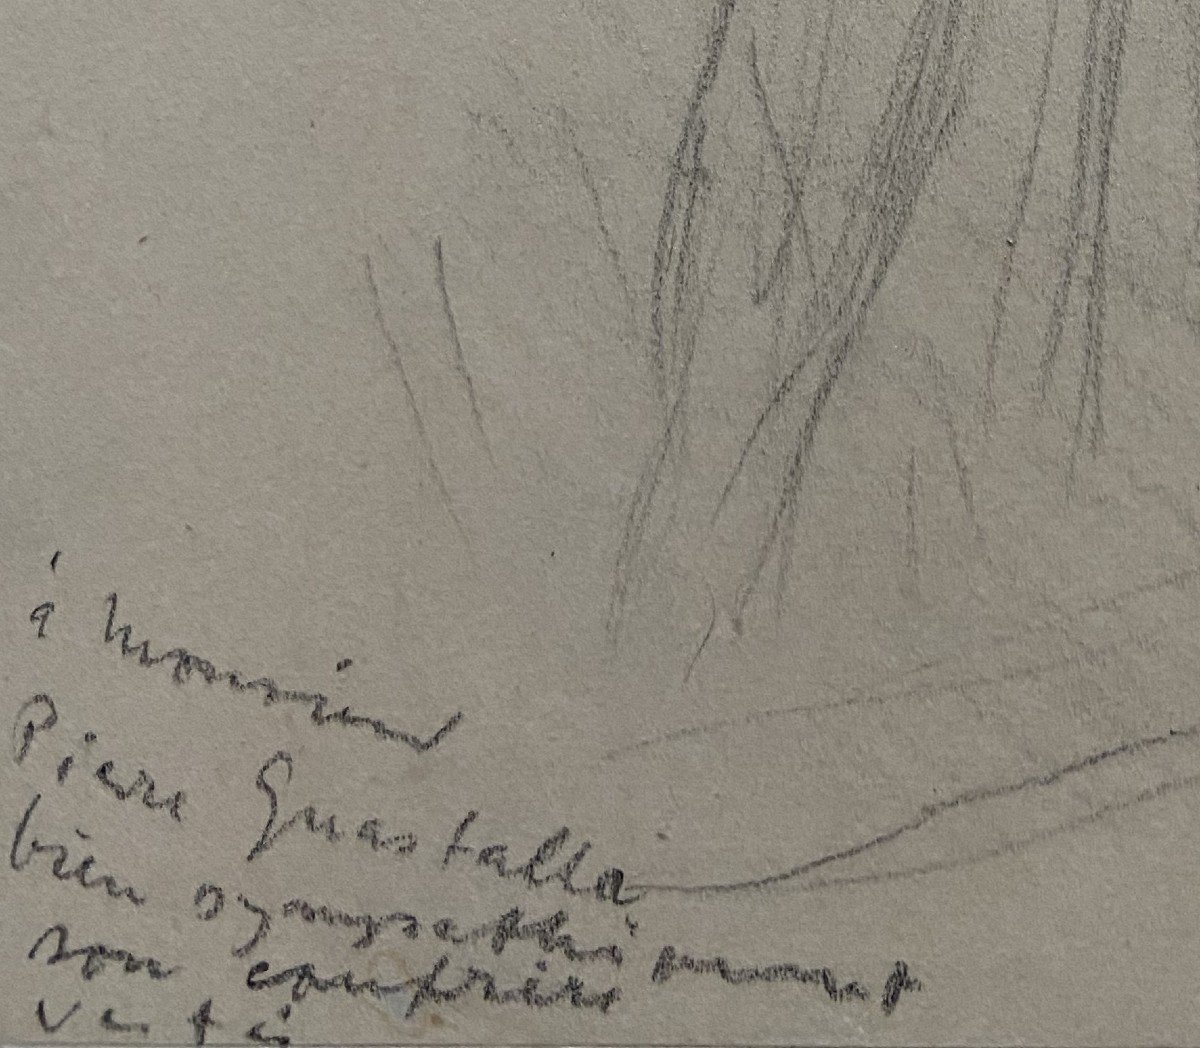 à Monsieur
Pierre Guastalla
bien sympathiquement
son confrère